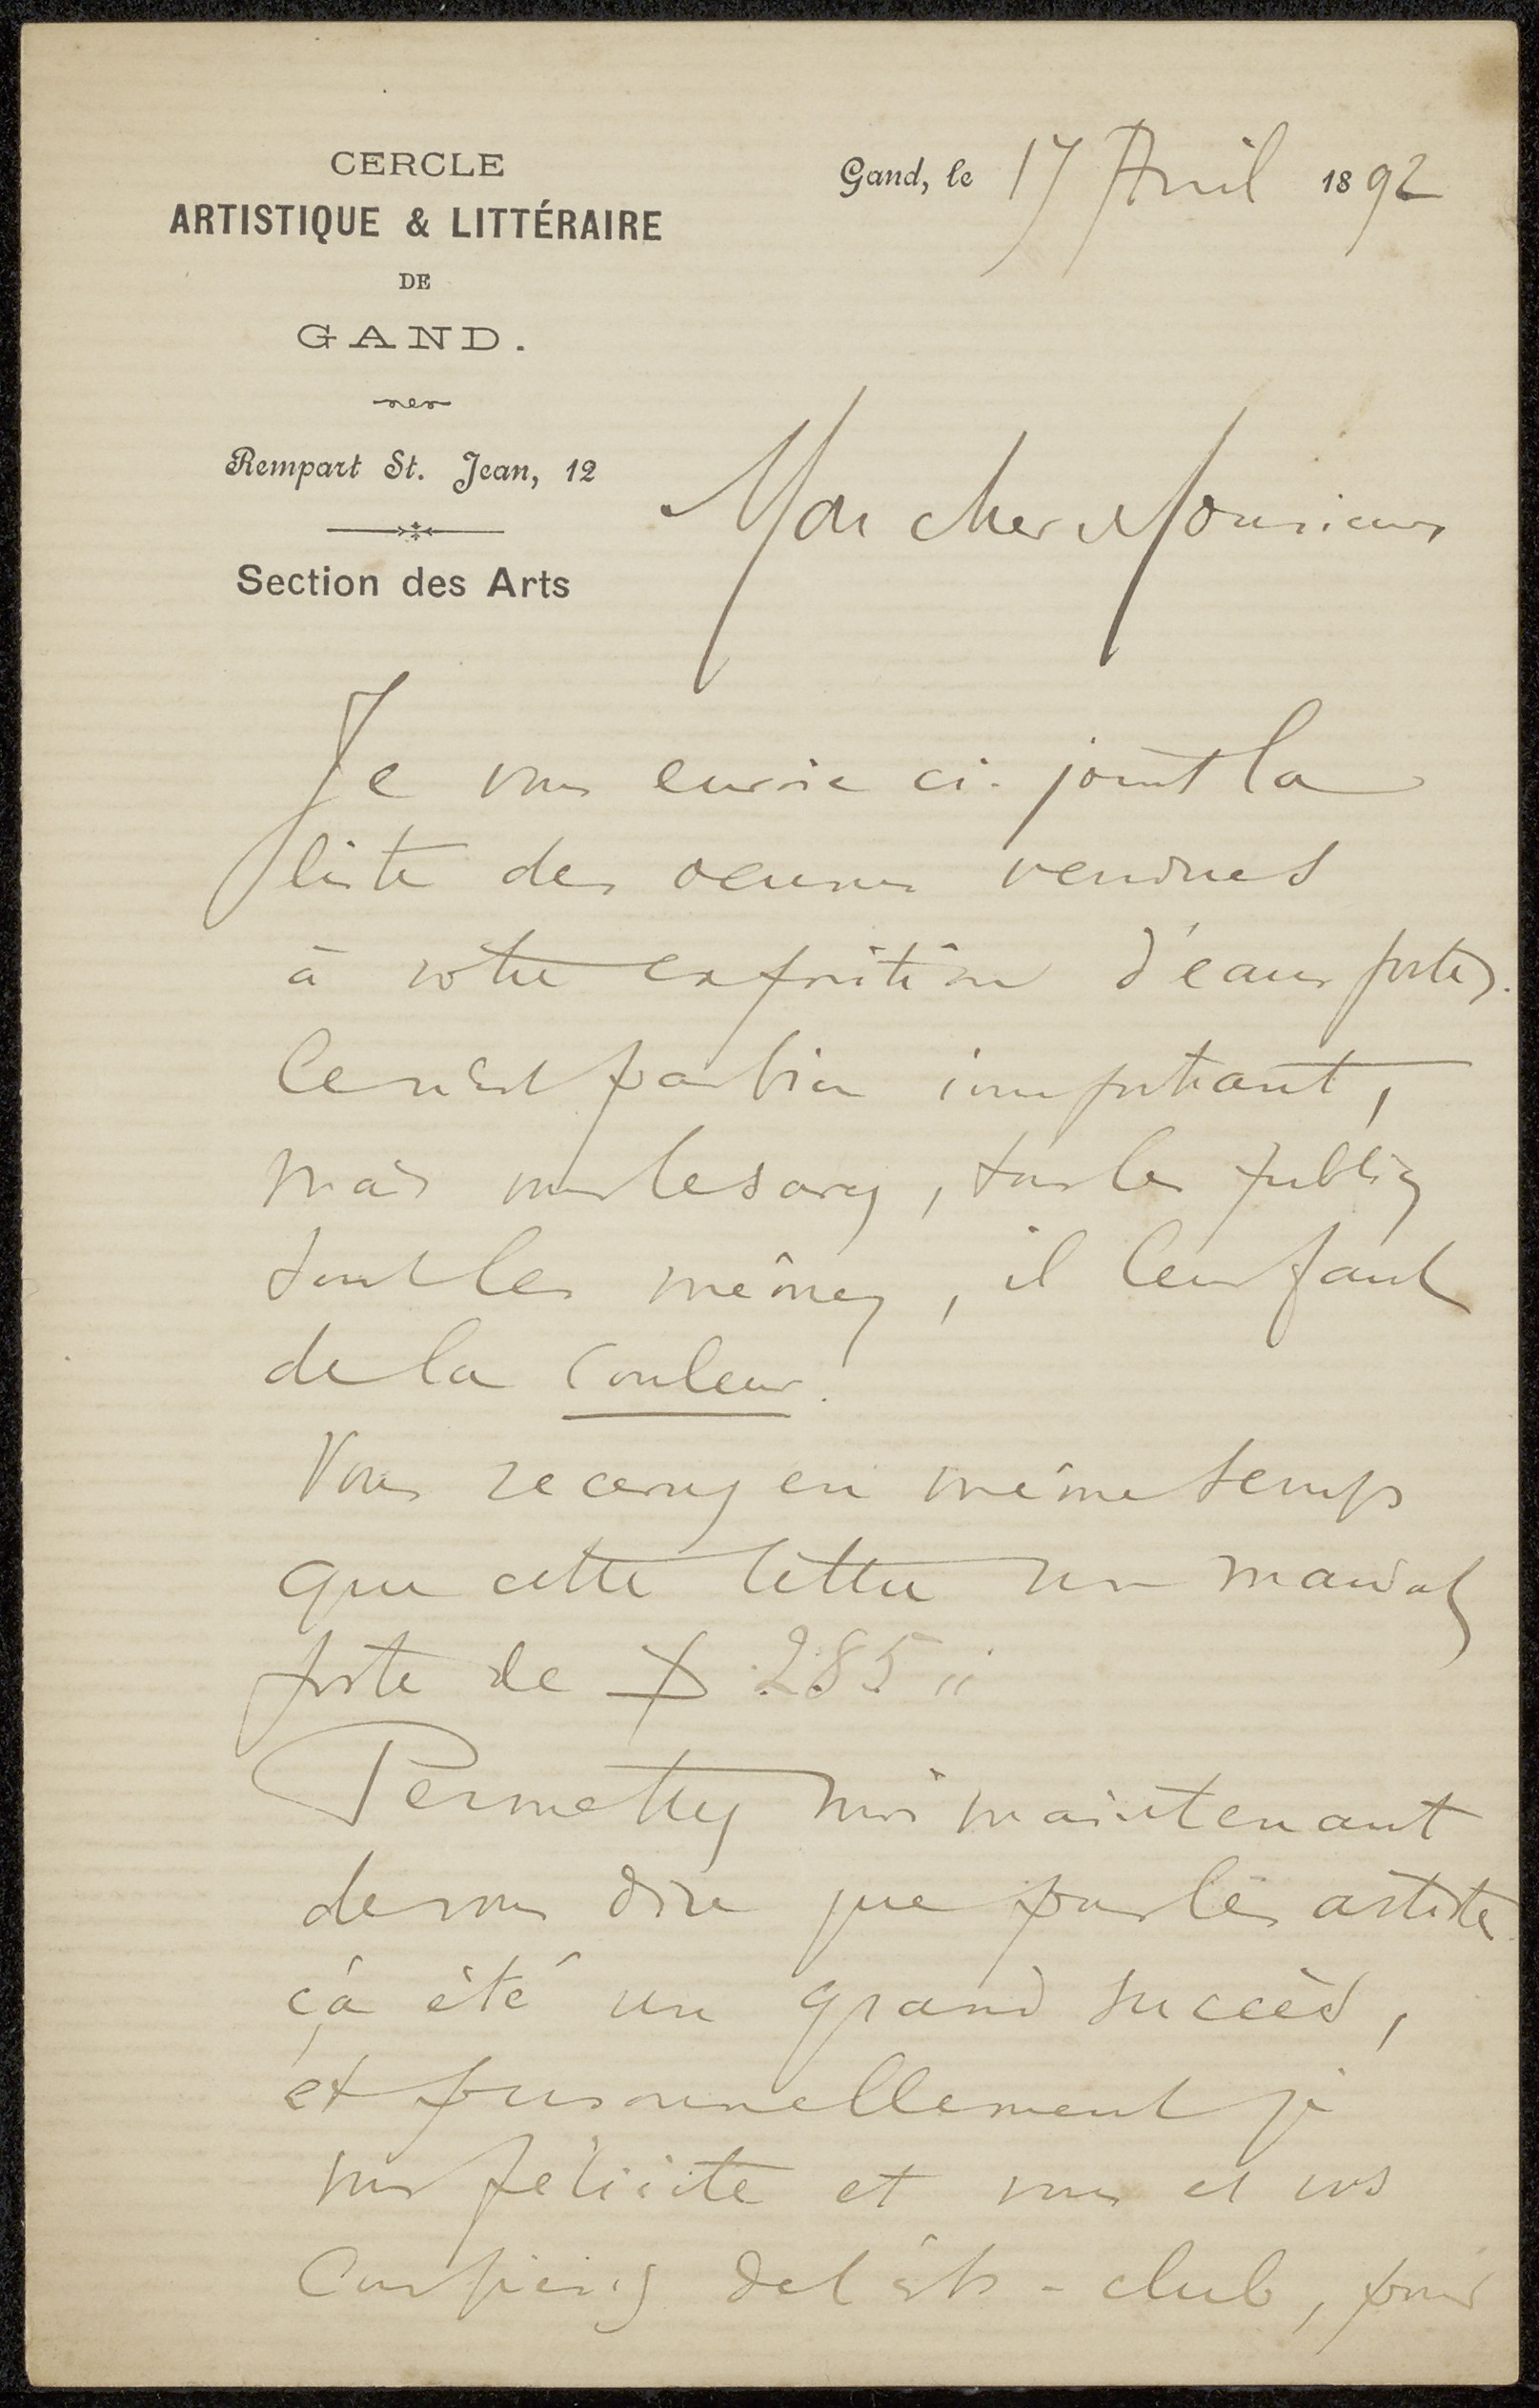 CERCLE
ARTISTIQUE & LITTÉRAIRE
DE
GAND.
Rempart St. Jean, 12
Section des Arts
Gand, le 17 Avril 1892
Mon cher Monsieur
Je vous envoie ci-joint la
liste des oeuvres vendues
à votre exposition d'eaux fortes.
Ce n'est pas bien important,
mais vous le savez, tous les publics
sont les mêmes, il leur faut
de la couleur.
Vous recevrez en même temps
que cette lettre un mandat
poste de 285 "
Permettez moi maintenant
de vous dire que pour les artistes
ç'a été un grand succès,
et personnellement je
vous félicite et vous et vos
confrères de l'ets-club, pour